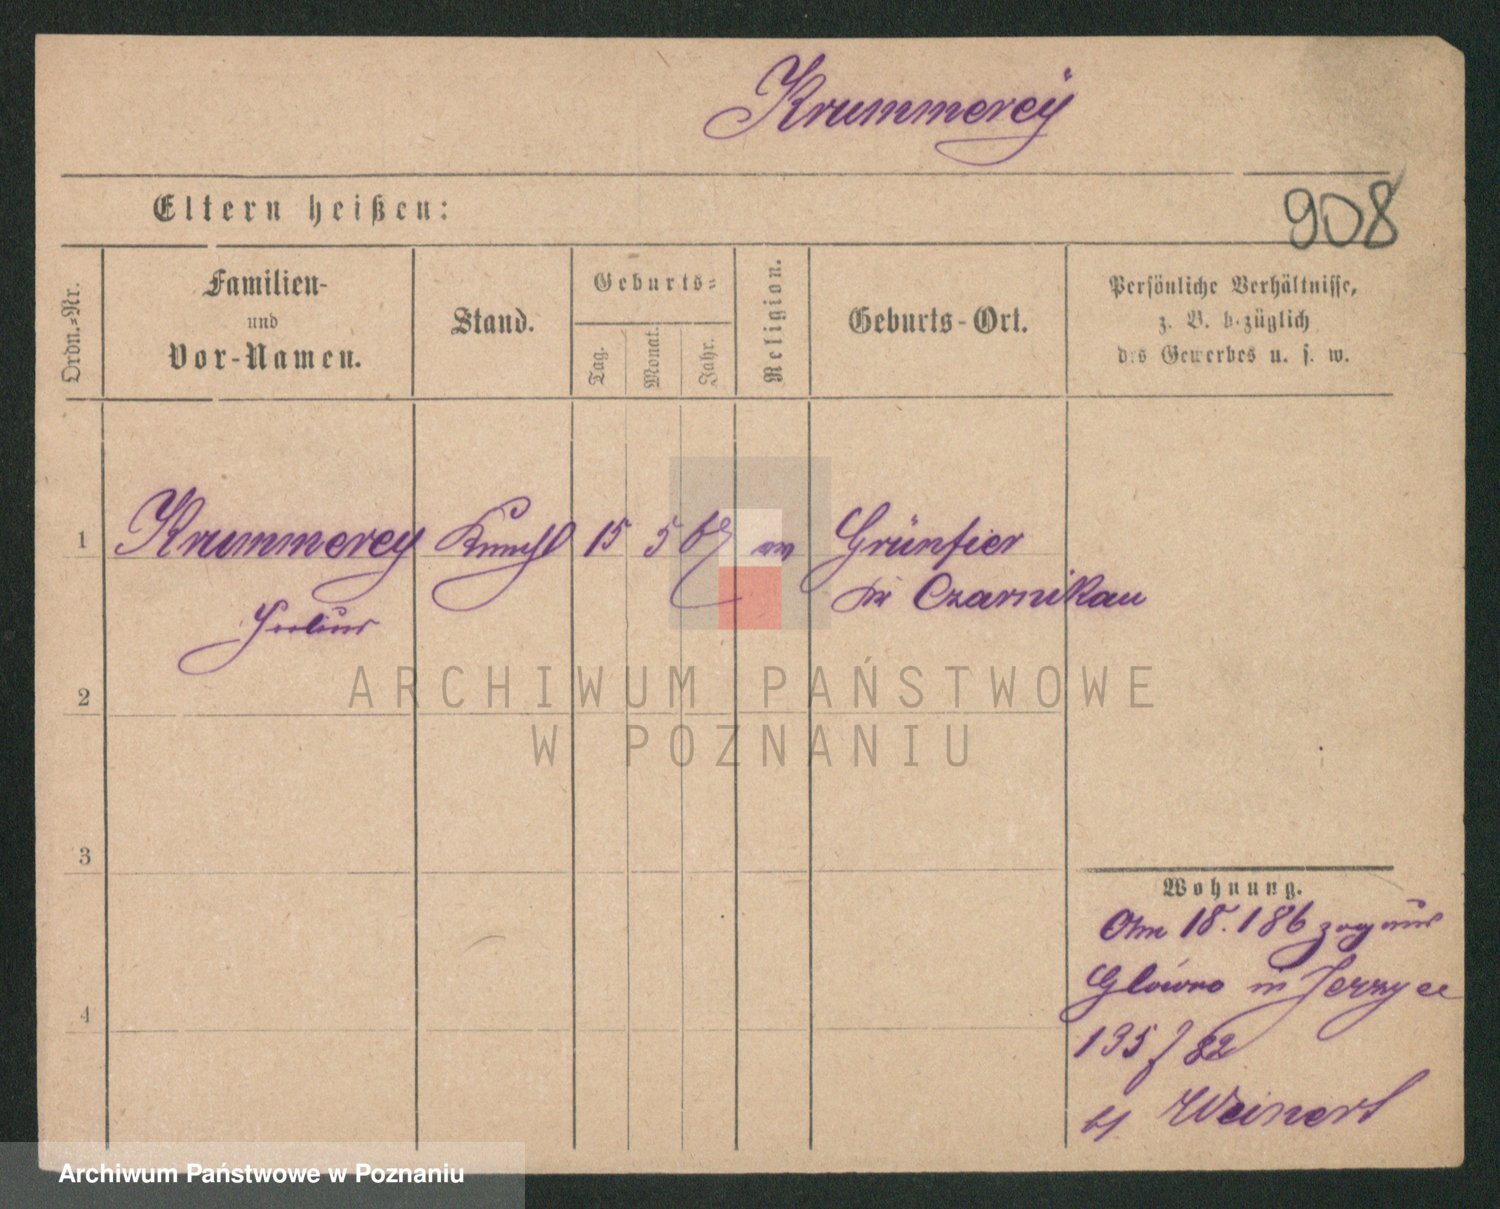 Krummerey
908
Eltern heißen:
Ordn.-Nr.
Familien-
und
Vor-Namen.
Stand.
Geburts-
Tag.
Monat.
Jahr.
Religion.
Geburts-Ort.
Persönliche Verhältnisse,
z. B. bezüglich
des Gewerbes u. s. w.
1 Krummerey 15 5 67 Grünfier
Julius Czarnikau
2
3
4
Wohnung.
18. 186 zog aus
Glówno in
135 82
Weinert
ARCHIWUM PAŃSTWOWE
W POZNANIU
Archiwum Państwowe w Poznaniu